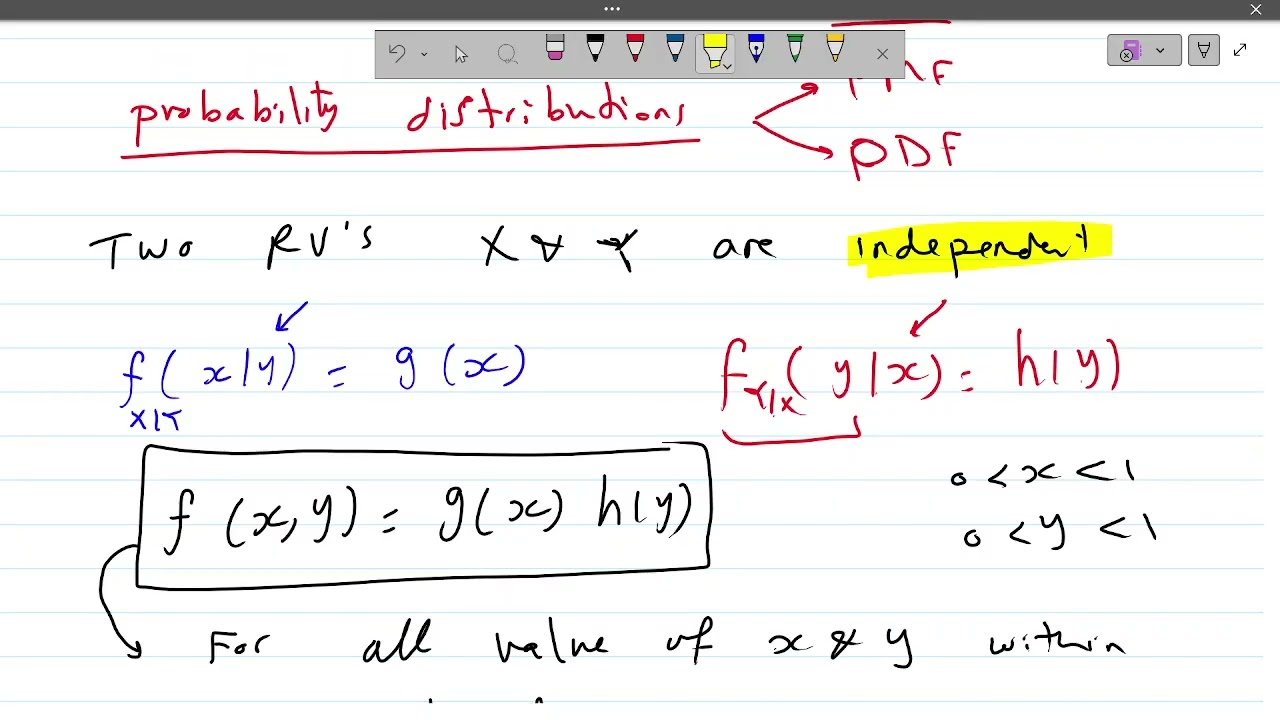 probability distributions
PDF
Two RV's X & Y are independent
f_{X|Y}(x|y) = g(x)
f_{Y|X}(y|x) = h(y)
f(x,y) = g(x) h(y)
0 < x < 1
0 < y < 1
For all value of x & y within